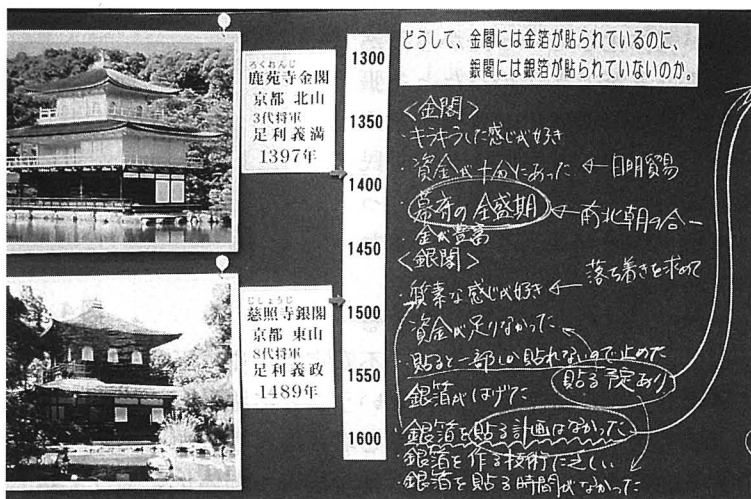 ろくおんじ
鹿苑寺金閣
京都 北山
3代将軍
足利義満
1397年
じしょうじ
慈照寺銀閣
京都 東山
8代将軍
足利義政
1489年
1300
1350
1400
1450
1500
1550
1600
どうして、金閣には金箔が貼られているのに、
銀閣には銀箔が貼られていないのか。
<金閣>
・キラキラした感じが好き
・資金が十分にあった ←日明貿易
・幕府の全盛期 ←南北朝の合一
・金が豊富
<銀閣>
・質素な感じが好き ← 落ち着きを求めて
・資金が足りなかった
・貼ると一部しか貼れないので止めた
貼る予定あり
・銀箔がはげた
・銀箔を貼る計画はなかった
・銀箔を作る技術に乏しい
・銀箔を貼る時間がなかった